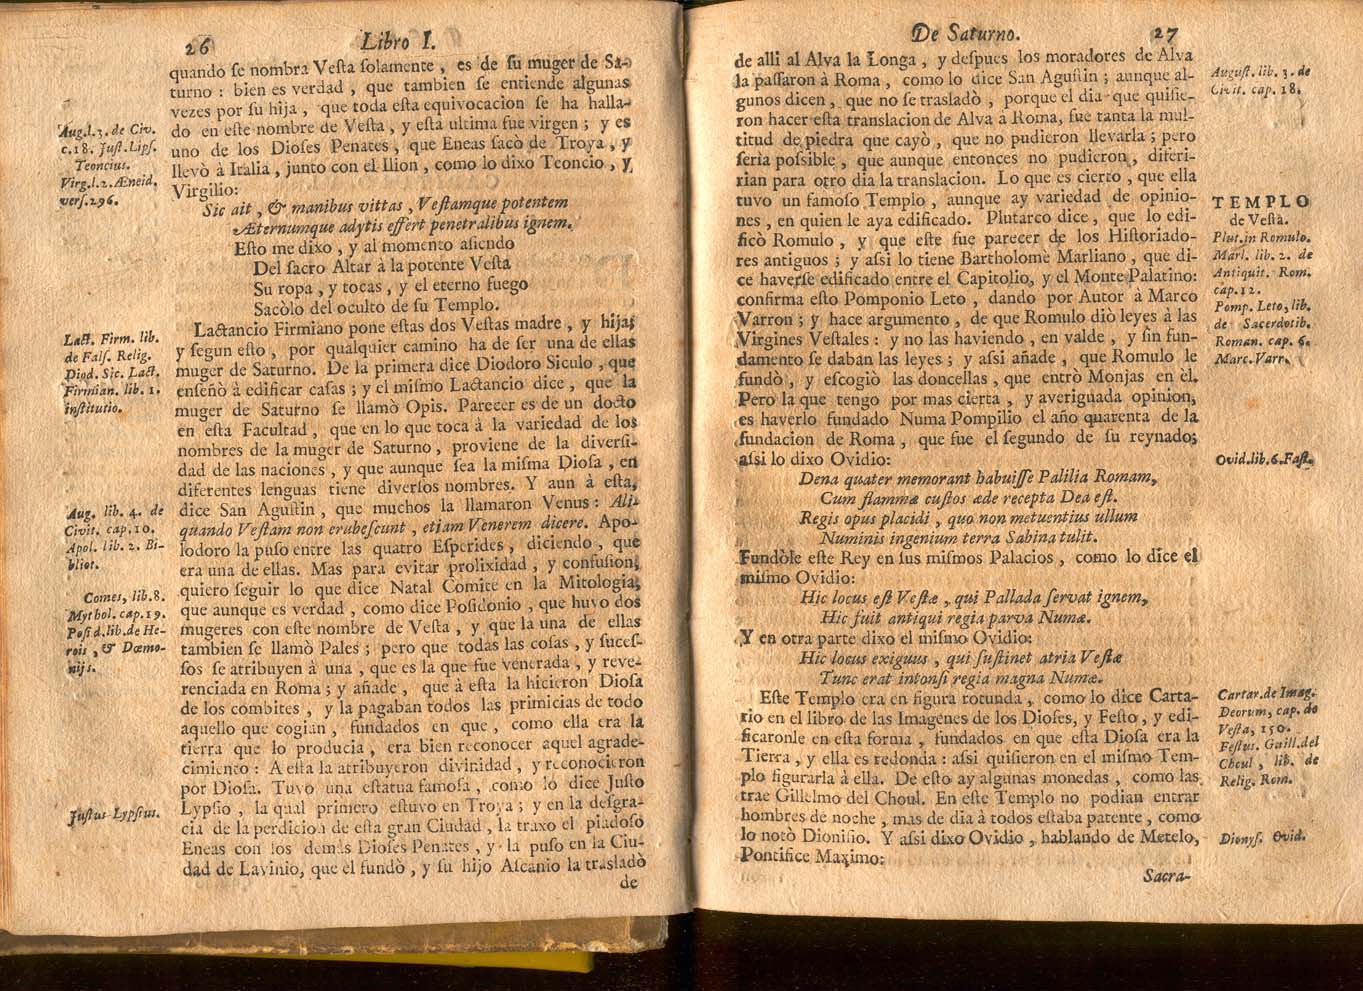 26 Libro I.
quando ſe nombra Veſta ſolamente , es de ſu muger de Sa-
turno : bien es verdad , que tambien ſe entiende algunas
vezes por ſu hija , que toda eſta equivocacion ſe ha halla-
do en eſte nombre de Veſta , y eſta ultima fue virgen ; y es
uno de los Dioſes Penates , que Eneas ſacò de Troya , y
llevò à Italia , junto con el Ilion , como lo dixo Teoncio , y
Virgilio:
Sic ait , & manibus vittas , Veſtamque potentem
Æternumque adytis effert penetralibus ignem.
Eſto me dixo , y al momento aſiendo
Del ſacro Altar à la potente Veſta
Su ropa , y tocas , y el eterno fuego
Sacòlo del oculto de ſu Templo.
Lactancio Firmiano pone eſtas dos Veſtas madre , y hija;
y ſegun eſto , por qualquier camino ha de ſer una de ellas
muger de Saturno. De la primera dice Diodoro Siculo , que
enſeñò à edificar caſas ; y el miſmo Lactancio dice , que la
muger de Saturno ſe llamò Opis. Parecer es de un docto
en eſta Facultad , que en lo que toca à la variedad de los
nombres de la muger de Saturno , proviene de la diverſi-
dad de las naciones , y que aunque ſea la miſma Dioſa , en
diferentes lenguas tiene diverſos nombres. Y aun à eſta,
dice San Aguſtin , que muchos la llamaron Venus : Ali-
quando Veſtam non erubeſcunt , etiam Venerem dicere. Apo-
lodoro la puſo entre las quatro Eſperides , diciendo , que
era una de ellas. Mas para evitar prolixidad , y confuſion,
quiero ſeguir lo que dice Natal Comite en la Mitologia;
que aunque es verdad , como dice Poſidonio , que huvo dos
mugeres con eſte nombre de Veſta , y que la una de ellas
tambien ſe llamò Pales ; pero que todas las coſas , y ſuceſ-
ſos ſe atribuyen à una , que es la que fue venerada , y reve-
renciada en Roma ; y añade , que à eſta la hicieron Dioſa
de los combites , y la pagaban todos las primicias de todo
aquello que cogian , fundados en que , como ella era la
tierra que lo producia , era bien reconocer aquel agrade-
cimiento : A eſta la atribuyeron divinidad , y reconocieron
por Dioſa. Tuvo una eſtatua famoſa , como lo dice Juſto
Lypſio , la qual primero eſtuvo en Troya ; y en la deſgra-
cia de la perdicion de eſta gran Ciudad , la traxo el piadoſo
Eneas con los demàs Dioſes Penates , y la puſo en la Ciu-
dad de Lavinio, que el fundò , y ſu hijo Aſcanio la traslado
de
Aug.l.3. de Civ.
c.18. Juſt.Lipſ.
Teoncius.
Virg.l.2.Æneid.
verſ.296.
Lact. Firm. lib.
de Falſ. Relig.
Diod. Sic. Lact.
Firmian. lib. 1.
inſtitutio.
Aug. lib. 4. de
Civit. cap.10.
Apol. lib. 2. Bi-
bliot.
Comes, lib.8.
Mythol. cap.19.
Poſid.lib.de He-
rois , & Dæmo-
nijs.
Juſtus Lypſius.
De Saturno. 27
de alli al Alva la Longa , y deſpues los moradores de Alva
la paſſaron à Roma , como lo dice San Aguſtin ; aunque al-
gunos dicen , que no ſe trasladò , porque el dia que quiſie-
ron hacer eſta translacion de Alva à Roma, fue tanta la mul-
titud de piedra que cayò , que no pudieron llevarla ; pero
ſeria poſsible , que aunque entonces no pudieron , diferi-
rian para otro dia la translacion. Lo que es cierto , que ella
tuvo un famoſo Templo , aunque ay variedad de opinio-
nes , en quien le aya edificado. Plutarco dice , que lo edi-
ficò Romulo , y que eſte fue parecer de los Hiſtoriado-
res antiguos ; y aſsi lo tiene Bartholomè Marliano , que di-
ce haverſe edificado entre el Capitolio, y el Monte Palatino:
confirma eſto Pomponio Leto , dando por Autor à Marco
Varron ; y hace argumento , de que Romulo diò leyes à las
Virgines Veſtales : y no las haviendo , en valde , y ſin fun-
damento ſe daban las leyes ; y aſsi añade , que Romulo le
fundò , y eſcogiò las doncellas , que entrò Monjas en èl.
Pero la que tengo por mas cierta , y averiguada opinion,
es haverlo fundado Numa Pompilio el año quarenta de la
fundacion de Roma , que fue el ſegundo de ſu reynado;
aſsi lo dixo Ovidio:
Dena quater memorant habuiſſe Palilia Romam,
Cum flammæ cuſtos æde recepta Dea eſt.
Regis opus placidi , quo non metuentius ullum
Numinis ingenium terra Sabina tulit.
Fundòle eſte Rey en ſus miſmos Palacios , como lo dice el
miſmo Ovidio:
Hic locus eſt Veſtæ , qui Pallada ſervat ignem,
Hic fuit antiqui regia parva Numæ.
Y en otra parte dixo el miſmo Ovidio:
Hic locus exiguus , qui ſuſtinet atria Veſtæ
Tunc erat intonſi regia magna Numæ.
Eſte Templo era en figura rotunda , como lo dice Carta-
rio en el libro de las Imagenes de los Dioſes, y Feſto , y edi-
ficaronle en eſta forma , fundados en que eſta Dioſa era la
Tierra , y ella es redonda : aſsi quiſieron en el miſmo Tem-
plo figurarla à ella. De eſto ay algunas monedas , como las
trae Gillelmo del Choul. En eſte Templo no podian entrar
hombres de noche , mas de dia à todos eſtaba patente , como
lo notò Dioniſio. Y aſsi dixo Ovidio , hablando de Metelo,
Pontifice Maximo:
Sacra-
Auguſt. lib. 3. de
Civit. cap. 18.
TEMPLO
de Veſta.
Plut.in Romulo.
Marl. lib. 2. de
Antiquit. Rom.
cap.12.
Pomp. Leto, lib.
de Sacerdotib.
Roman. cap. 6.
Marc.Varr.
Ovid.lib.6.Faſt.
Cartar.de Imag.
Deorum, cap. de
Veſta, 150.
Feſtus. Guill.del
Choul , lib. de
Relig. Rom.
Dionyſ. Ovid.